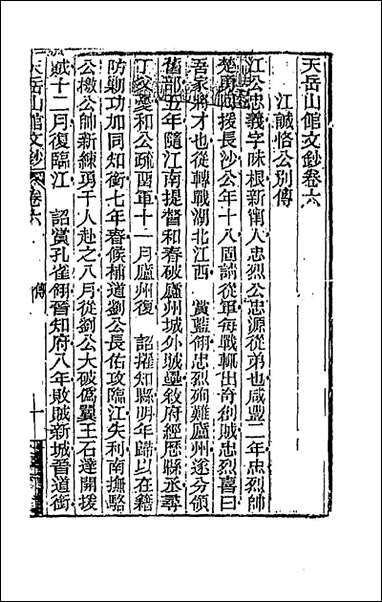 天岳山館文鈔卷六
江誠恪公別傳
江公忠義字味根新甯人忠烈公忠源從弟也咸豐二年忠烈帥
楚勇回援長沙公年十八固請從軍每戰輒出奇創賊忠烈喜曰
吾家將才也從轉戰湖北江西　賞藍翎忠烈殉難廬州遂分領
舊部五年隨江南提督和春破廬州城外賊壘敘府經歷縣丞尋
丁父憂和公疏留軍十一月廬州復　詔擢知縣明年歸以在籍
防勦功加同知銜七年春候補道劉公長佑攻臨江失利南撫駱
公檄公帥新練勇千人赴之八月從劉公大破僞翼王石達開援
賊十二月復臨江　詔賞孔雀翎晉知府八年敗賊新城晉道銜
天岳山館文鈔　卷六　傳　一